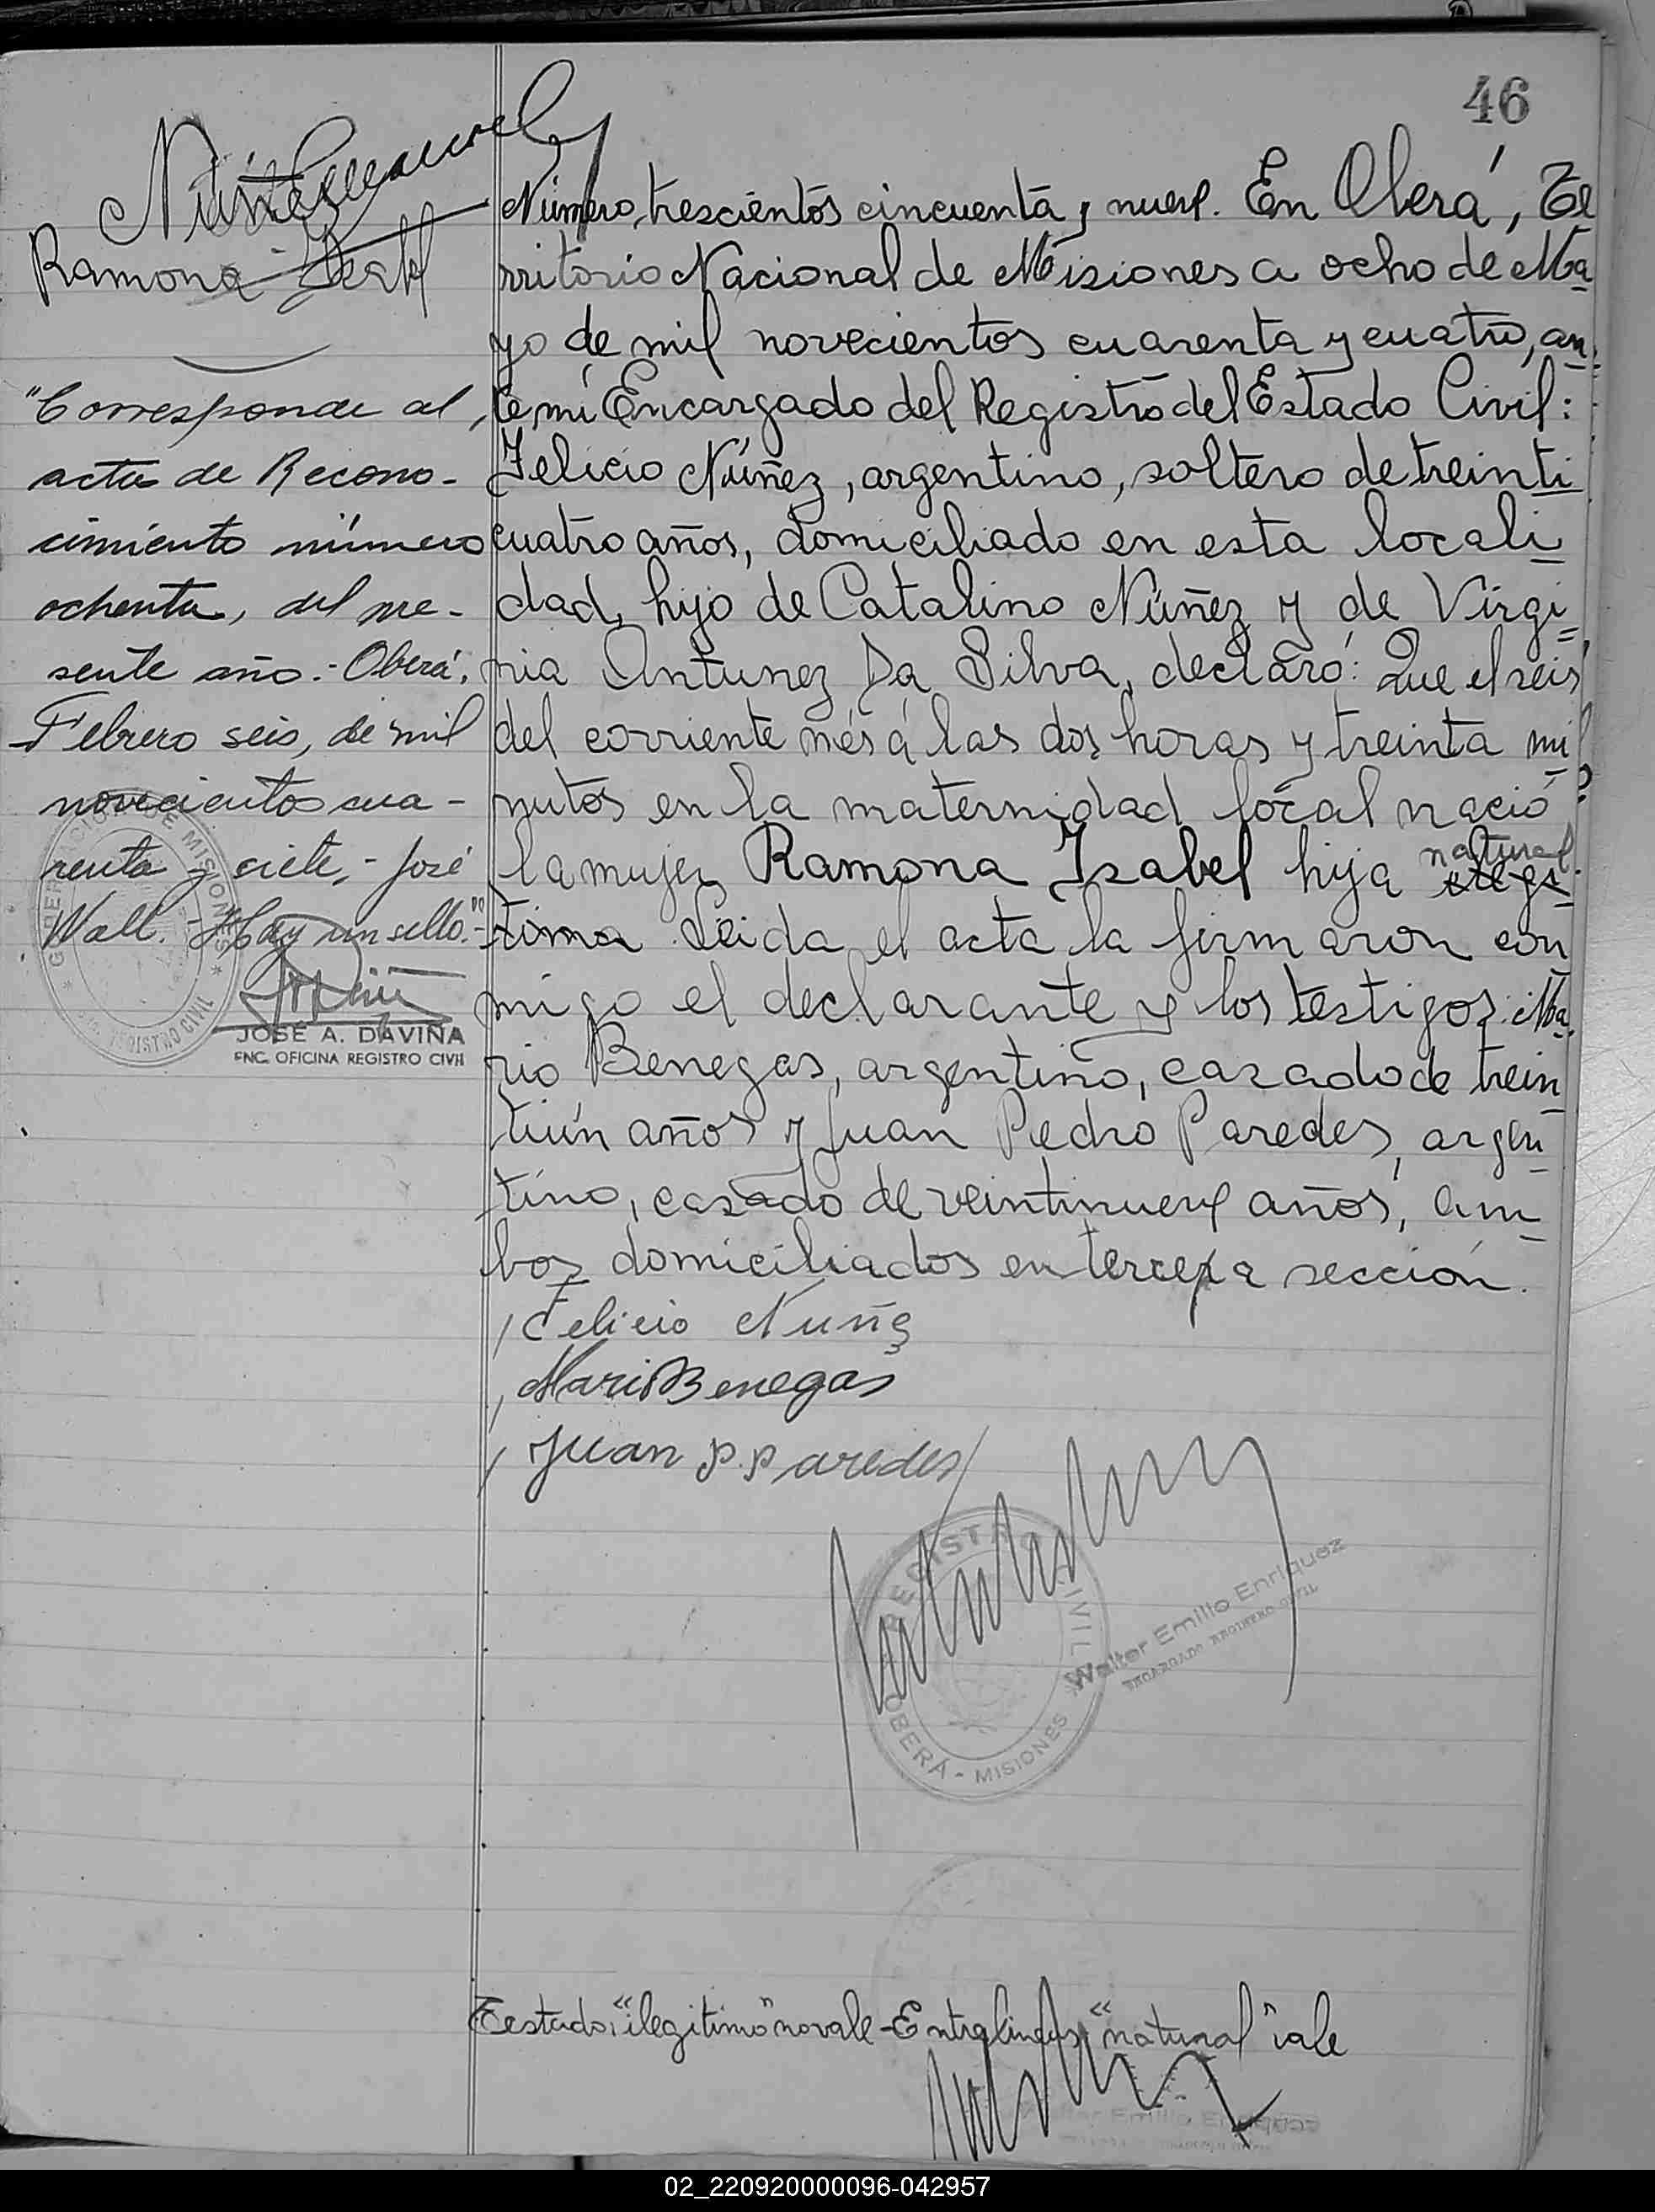 46
Núñez
Ramona Isabel
"Corresponde al
acta de Recono-
cimiento número
ochenta, del pre-
sente año.- Oberá,
Febrero seis, de mil
novecientos cua-
renta y siete, - José
Wall. Hay un sello."
GOBERNACION DE MISIONES
REGISTRO CIVIL
JOSÉ A. DAVIÑA
ENC. OFICINA REGISTRO CIVIL
Número, trescientos cincuenta y nueve. En Oberá, Te
rritorio Nacional de Misiones a ocho de Ma
yo de mil novecientos cuarenta y cuatro, an
te mí Encargado del Registro del Estado Civil:
Felicio Núñez, argentino, soltero de treinti
cuatro años, domiciliado en esta locali
dad, hijo de Catalino Núñez y de Virgi
nia Antunez Da Silva, declaró: Que el seis
del corriente mes á las dos horas y treinta mi
nutos en la maternidad local nació
natural
la mujer Ramona Isabel hija ilegi
tima Leida el acta la firmaron con
migo el declarante y los testigos: Ma
rio Benegas, argentino, casado de trein
tiún años y Juan Pedro Paredes, argen
tino, casado de veintinueve años, am
bos domiciliados en tercera sección.
Felicio Nuñez
Mario Benegas
Juan P. Paredes
REGISTRO CIVIL
OBERÁ - MISIONES
Walter Emilio Enriquez
ENCARGADO REGISTRO CIVIL
Testado: "ilegitima" no vale - Entrelineas: "natural" vale
02_220920000096-042957